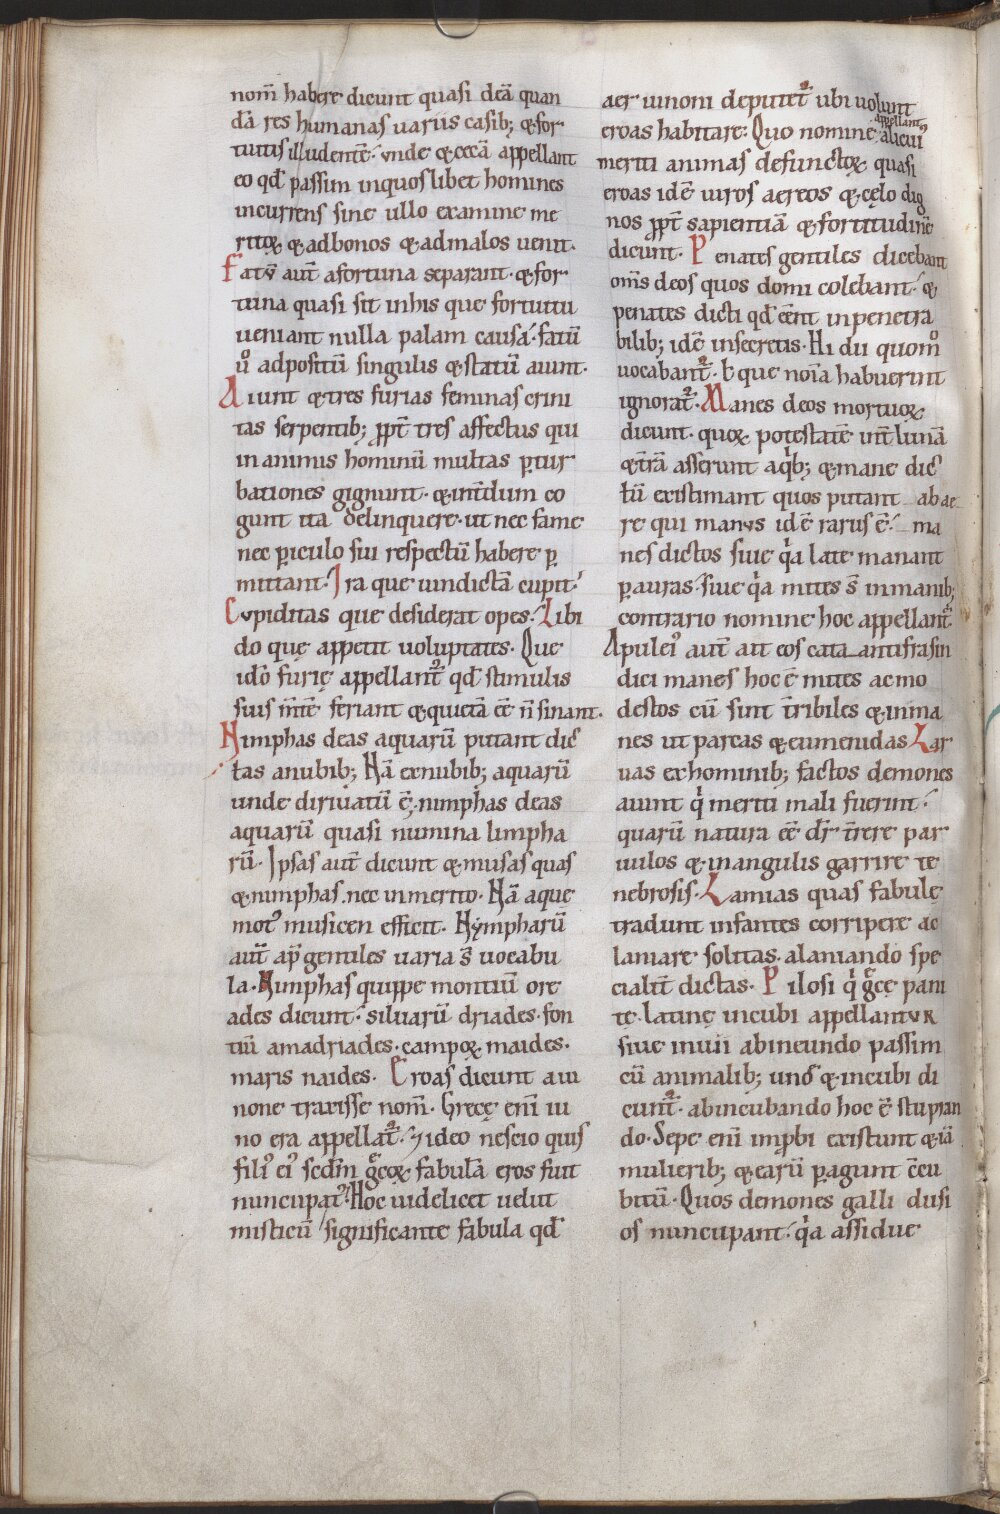 nom̄ habere dicunt quasi deā quan
dā res humanas uariis casib; & for
tuitis illudentē. vnde & cecā appellant
eo qđ passim inquoslibet homines
incurrens sine ullo examine me
ritoꝝ & adbonos & admalos uenit.
Fatū aut̄ afortuna separant. & for
tuna quasi sit inhis que fortuitu
ueniant nulla palam causa. fatū
ů adpositū singulis & statū aiunt.
Aiunt & tres furias feminas crini
tas serpentib; ꝓpt̄ tres affectus qui
in animis hominū multas ꝑtur
bationes gignunt. & int̄dum co
gunt ita delinquere. ut nec fame
nec ꝑiculo sui respectū habere ꝑ
mittant. Ira que uindictā cupit.
Cvpiditas que desiderat opes. Libi
do quę appetit uoluptates. Que
idō furię appellant᷑ qđ stimulis
suis mēntē feriant & quietā eē n̄ sinant.
Nimphas deas aquarū putant dic̄
tas anubib; Nā exnubib; aquarū
unde diriuatū ē. nimphas deas
aquarū quasi numina limpha
rū. Ipsas aut̄ dicunt & musas quas
& nimphas. nec inmerito. Nā aque
mot᷒ musicen efficit. Nympharū
aut̄ ap̄ gentiles uaria s̄ uocabu
la. Nimphas quippe montiū ore
ades dicunt. siluarū driades. fon
tiū amadriades. campoꝝ maides.
maris naides. Eroas dicunt a iu
none traxisse nom̄. Grecę enī iu
no era appellat᷑. ⁊ ideo nescio quis
fili᷒ ei᷒ scd̄m g̃coꝝ fabulā eros fuit
nuncupat᷒. Hoc uidelicet uelut
misticū significante fabula qđ
aer iunoni deputet᷑ ubi uolunt
eroas habitare. Quo nomine appellant alicui᷒
meriti animas defunctoꝝ quasi
eroas idē uiros aereos & cęlo dig
nos ꝓpt̄ sapientiā & fortitudinē
dicunt. Penates gentiles dicebant
om̄s deos quos domi colebant. &
penates dicti qđ eēnt inpenetra
bilib; idē insecretis. Hi dii quom̊
uocabant᷑. ł que noīa habuerint
ignorat᷑. Manes deos mortuoꝝ
dicunt. quoꝝ potestatē int̄ lunā
& t̄rā asserunt aqͥb; & mane dic̄
tū existimant quos putant ab ae
re qui manvs idē rarus ē. ma
nes dictos siue qͥa late manant
ꝑ auras. siue qͥa mites s̄ inmanib;
contrario nomine hoc appellant᷑.
Apulei᷒ aut̄ ait eos cata antifrasin
dici manes hoc ē mites ac mo
destos cū sint t̄ribiles & inma
nes ut parcas & eumenidas Lar
uas exhominib; factos demones
aiunt qͥ meriti mali fuerint.
quarū natura eē dr̄ t̄rere par
uulos & inangulis garrire te
nebrosis. Lamias quas fabulę
tradunt infantes corripere ac
laniare solitas. alaniando spe
cialit̄ dictas. Pilosi qͥ g̃ce pani
te. latinę incubi appellantvr
siue inuii abineundo passim
cū animalib; und̄ & incubi di
cunt᷑. abincubando hoc ē stupran
do. Sepe enī imꝓbi existunt & iā
mulierib; & earū ꝑagunt c̄cu
bitū. Quos demones galli dusi
os nuncupant. qͥa assidue